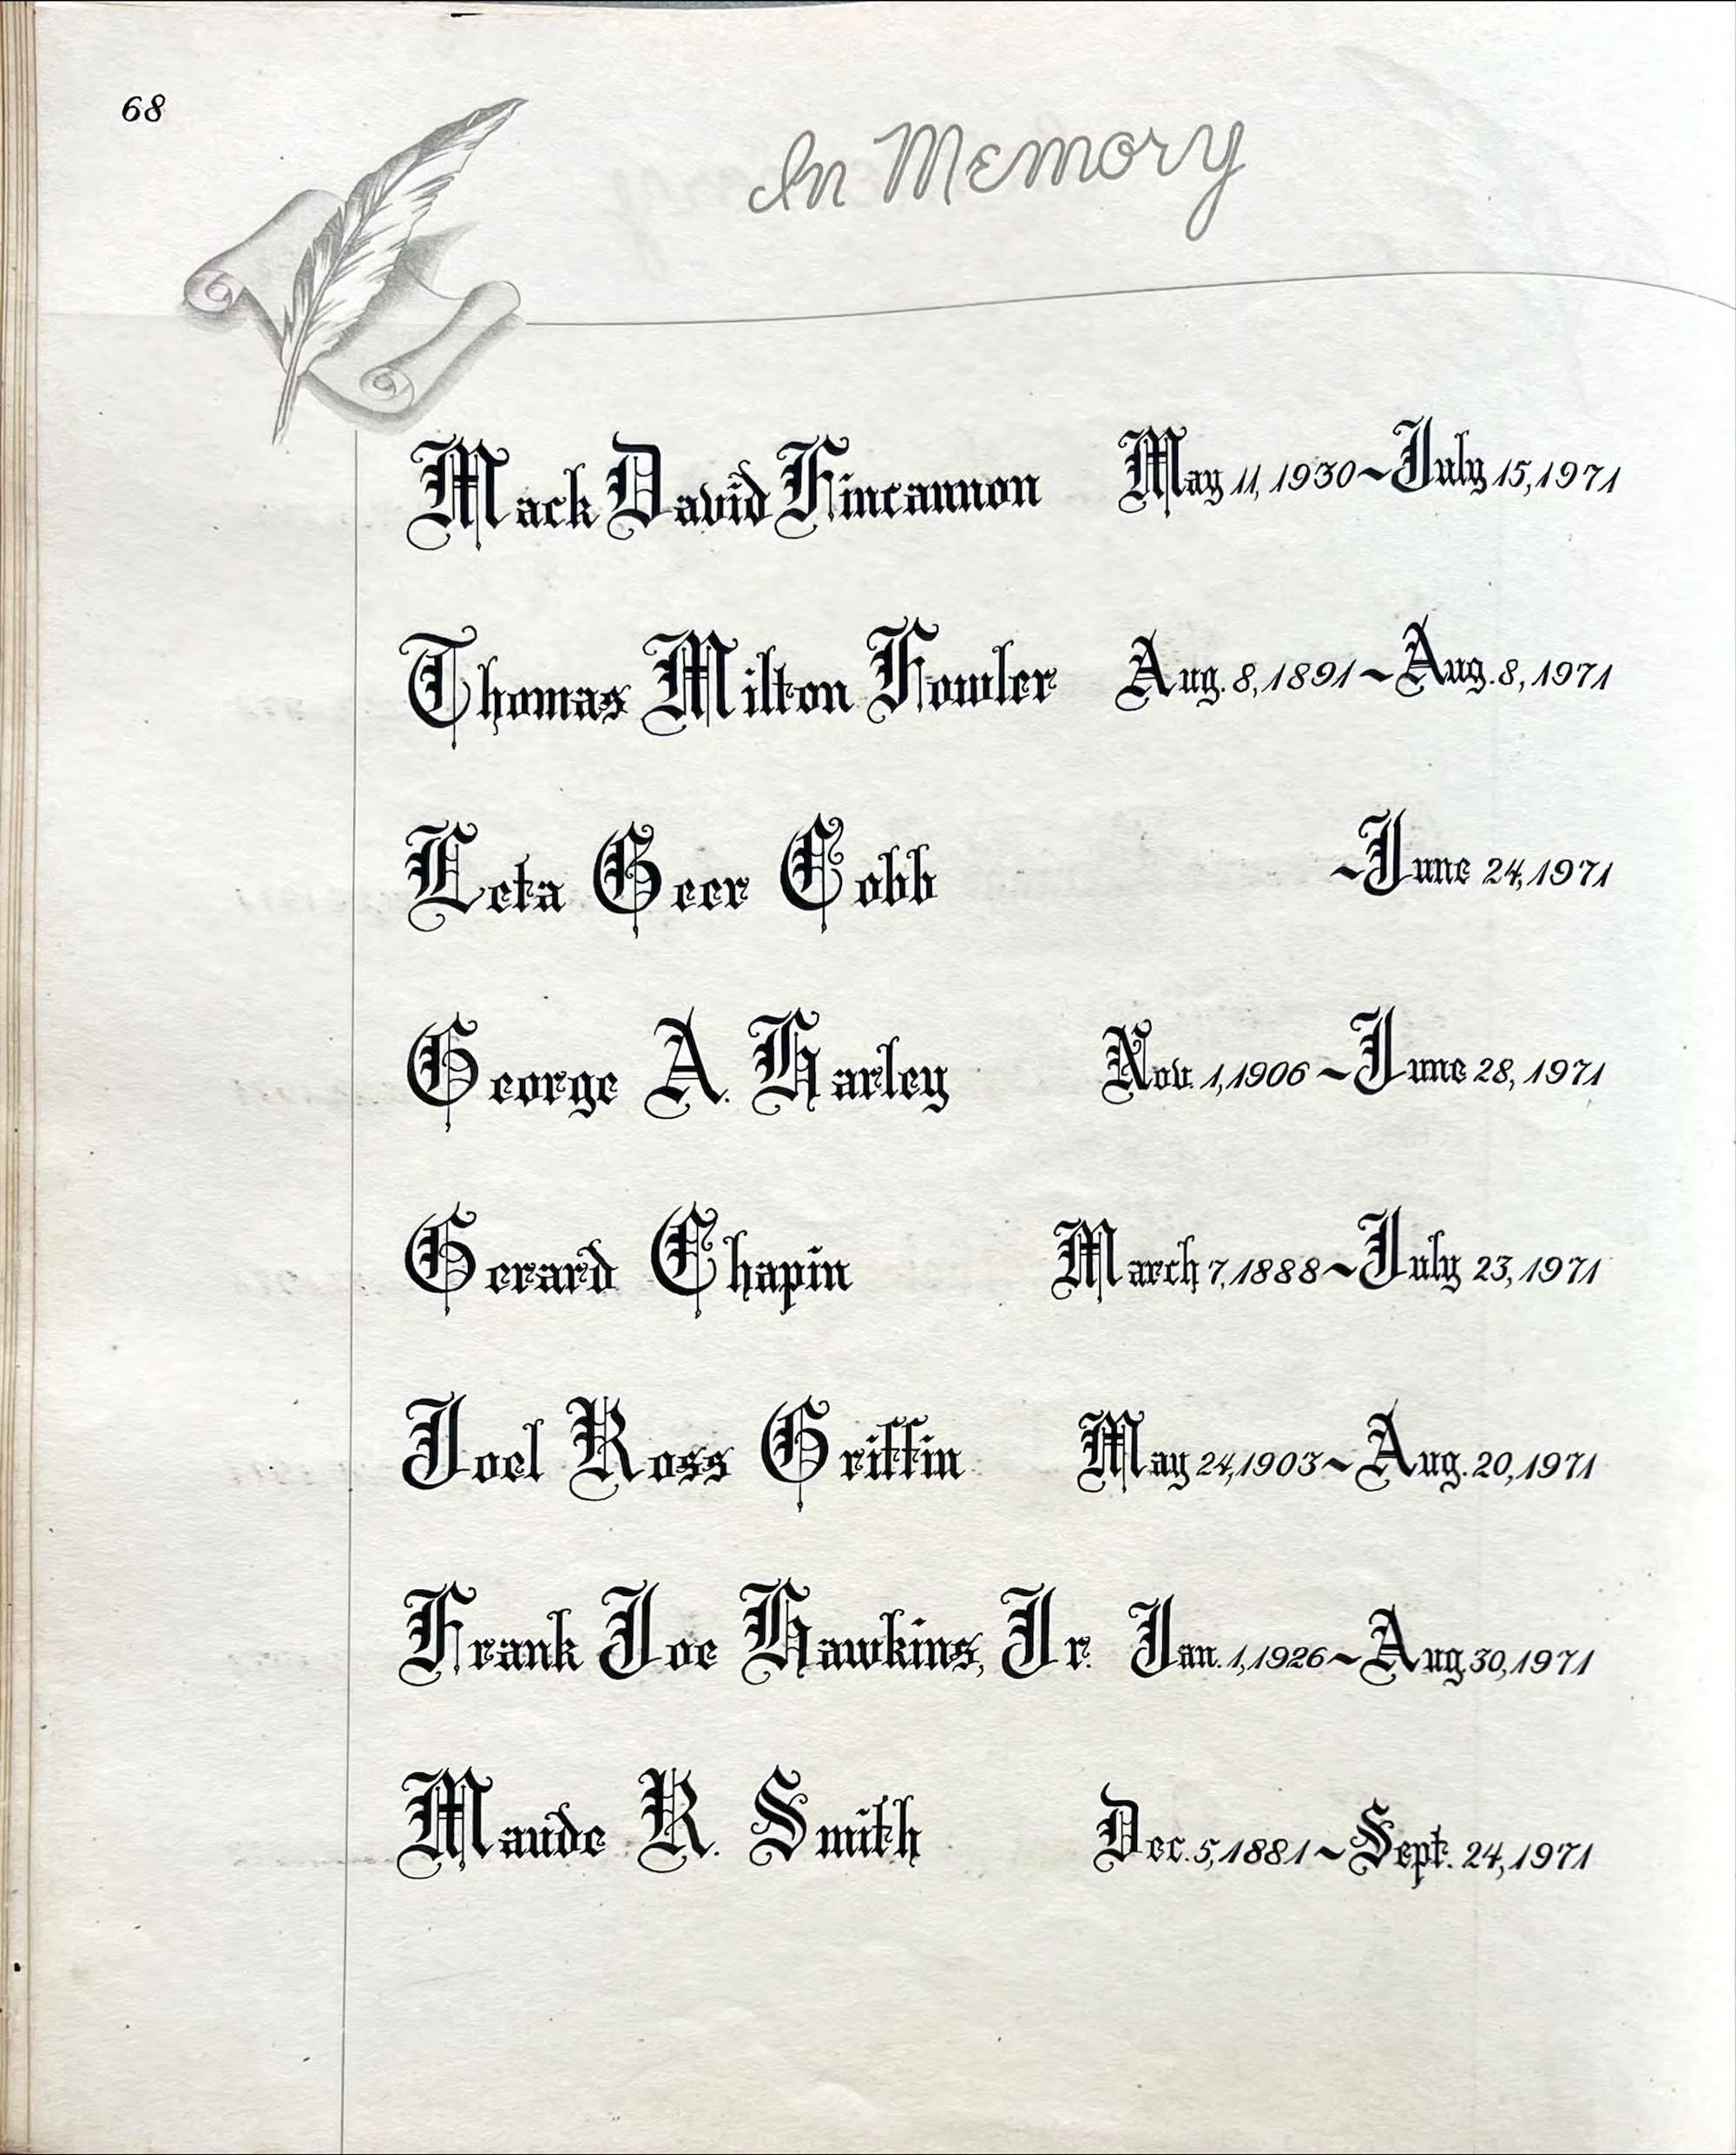 68
In Memory
Mack David Fincannon May 11, 1930~July 15, 1971
Thomas Milton Fowler Aug. 8, 1891~Aug. 8, 1971
Leta Geer Cobb ~June 24, 1971
George A. Harley Nov. 1, 1906~June 28, 1971
Gerard Chapin March 7, 1888~July 23, 1971
Joel Ross Griffin May 24, 1903~Aug. 20, 1971
Frank Joe Hawkins, Jr. Jan. 1, 1926~Aug. 30, 1971
Maude R. Smith Dec. 5, 1881~Sept. 24, 1971